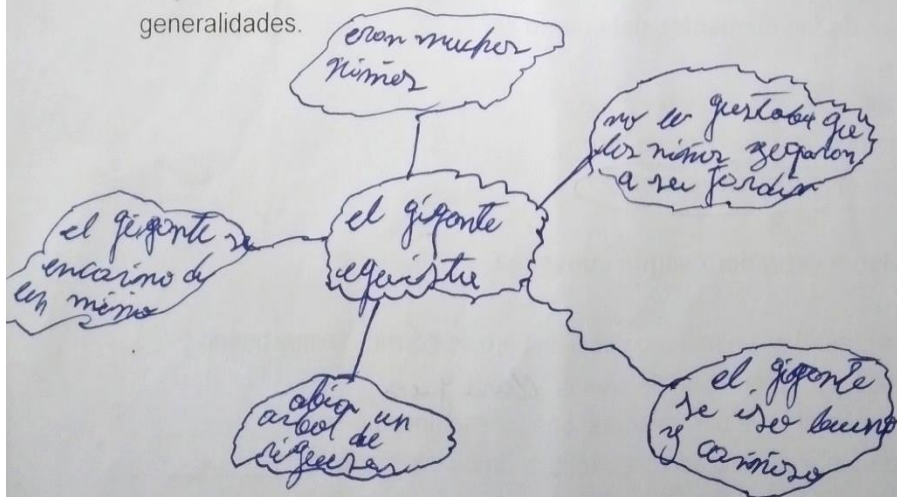 generalidades.
eran muchos
niños
no le gustaba que
los niños yegaran
a su jardin
el gigante
egoista
el gigante se
encarino de
un niño
abia un
arbol de
el gigante
se iso bueno
y cariñoso